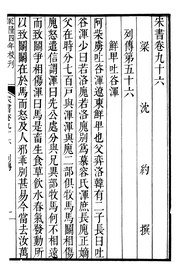 宋書卷九十六
梁沈約撰
列傳第五十六
鮮卑吐谷渾
阿柴虜吐谷渾遼東鮮卑也父弈洛韓有二子長曰吐
谷渾少曰若洛廆若洛廆別爲慕容氏渾庶長廆正嫡
父在時分七百戶與渾渾與廆二部俱牧馬馬鬬相傷
廆怒遣信謂渾曰先公處分與兄異部牧馬何不相遠
而致鬬爭相傷渾曰馬是畜生食草飲水春氣發動所
以致鬬鬬在於馬而怒及人邪乖別甚易今當去汝萬
乾隆四年校刊
宋書卷九十六